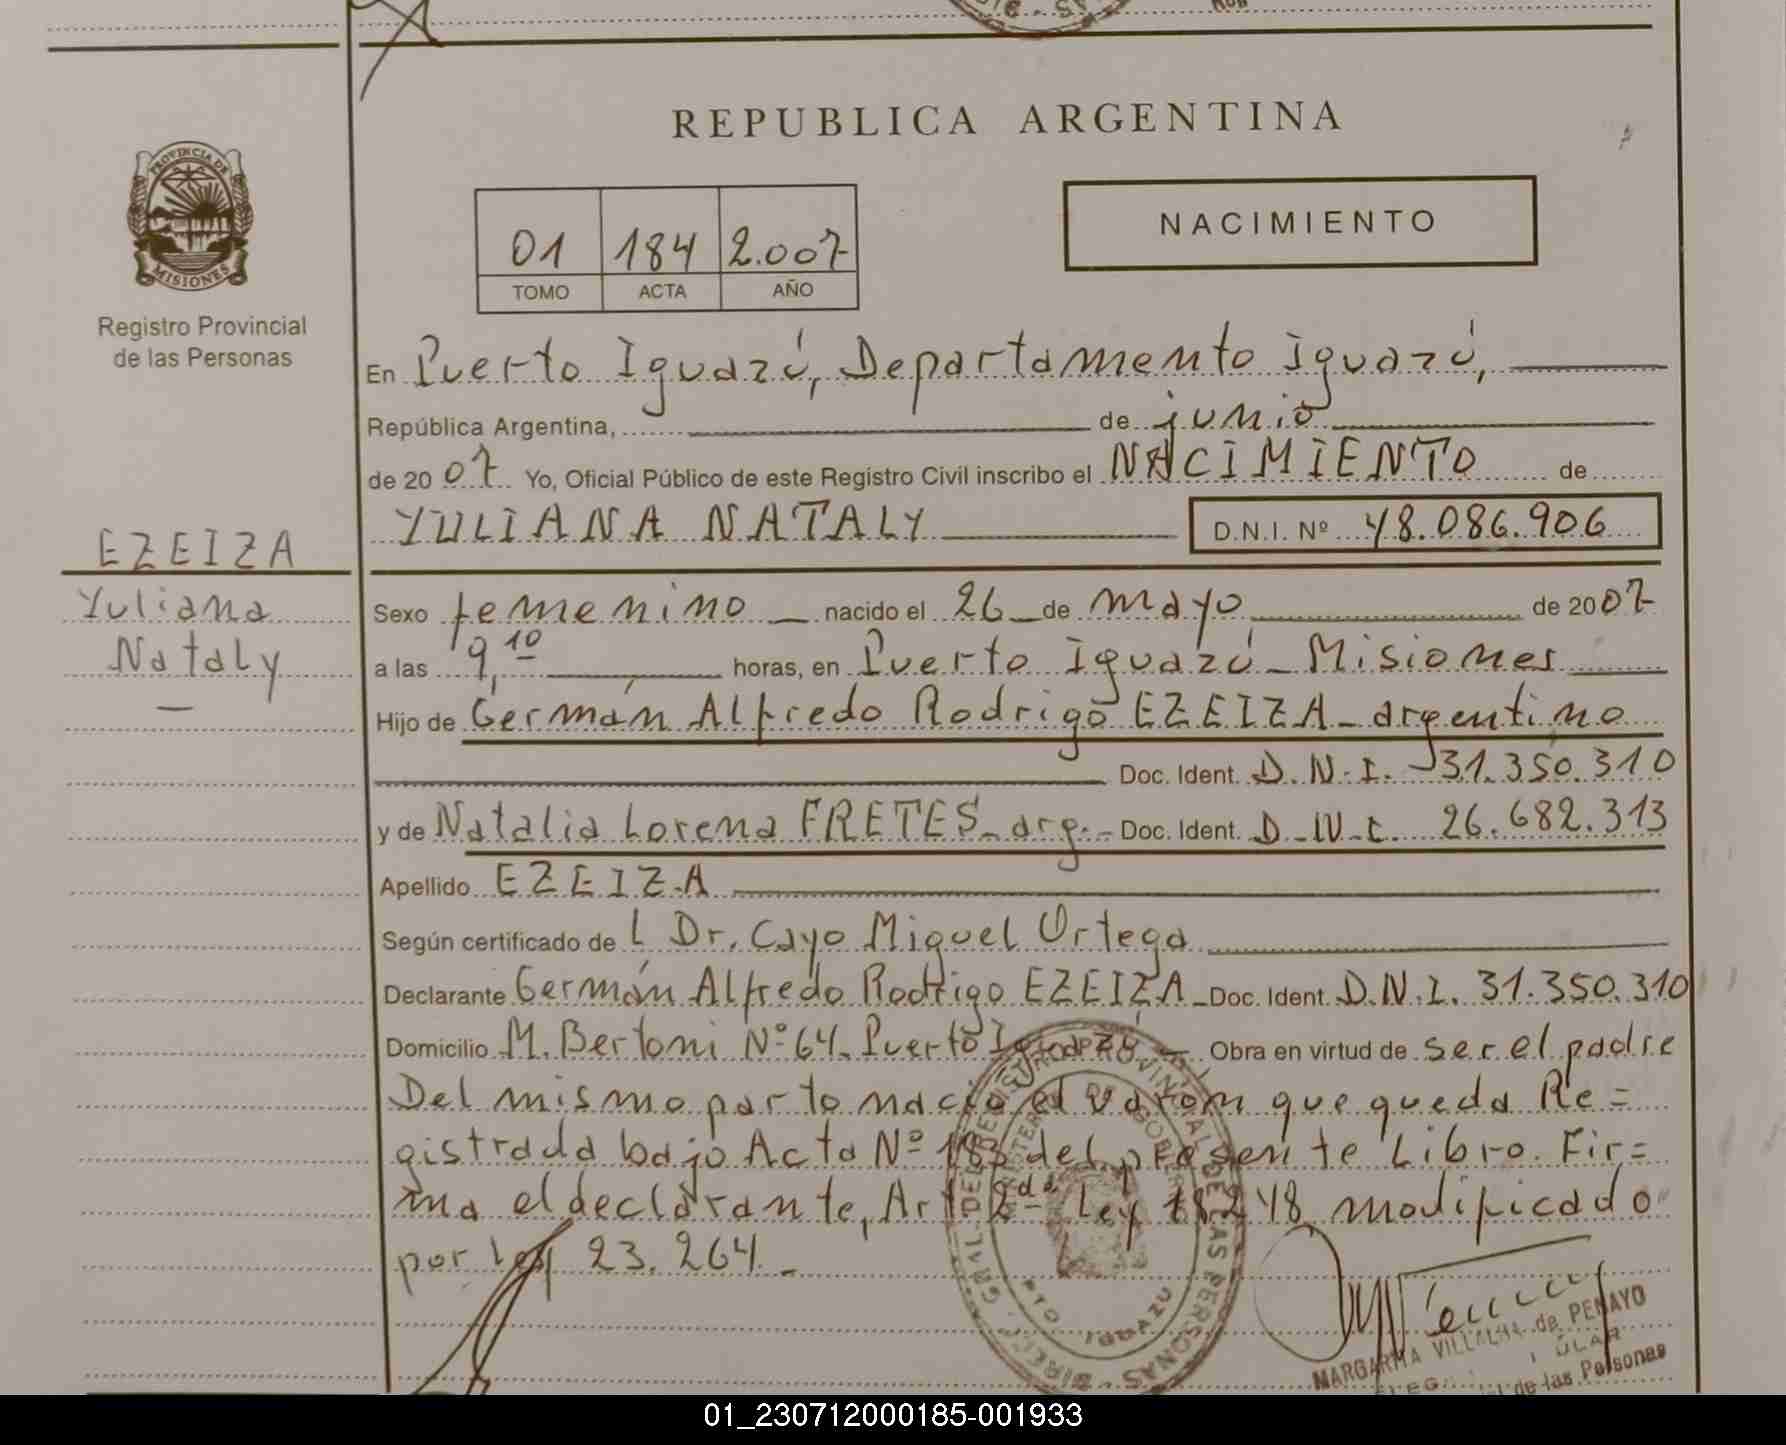 REPUBLICA ARGENTINA
NACIMIENTO
01 184 2.007
TOMO ACTA AÑO
PROVINCIA DE
MISIONES
Registro Provincial
de las Personas
En Puerto Iguazú, Departamento Iguazú,
República Argentina, de junio
de 2007 Yo, Oficial Público de este Registro Civil inscribo el NACIMIENTO de
YULIANA NATALY D.N.I. Nº 48.086.906
EZEIZA
Yuliana
Nataly
Sexo femenino nacido el 26 de mayo de 2007
a las 9,10 horas, en Puerto Iguazú - Misiones
Hijo de Germán Alfredo Rodrigo EZEIZA - argentino
Doc. Ident. D.N.I. 31.350.310
y de Natalia Lorena FRETES - arg. - Doc. Ident. D.N.I. 26.682.313
Apellido EZEIZA
Según certificado de L Dr. Cayo Miguel Ortega
Declarante Germán Alfredo Rodrigo EZEIZA - Doc. Ident. D.N.I. 31.350.310
Domicilio M. Bertoni Nº 64. Puerto Iguazú - Obra en virtud de ser el padre
Del mismo parto nació el varón que queda Re=
gistrada bajo Acta Nº 183 del presente Libro. Fir=
ma el declarante, Art 2da Ley 18248 modificado
por ley 23.264. -
PTO. IGUAZU
MARGARITA VILLALBA de PENAYO
de las Personas
01_230712000185-001933